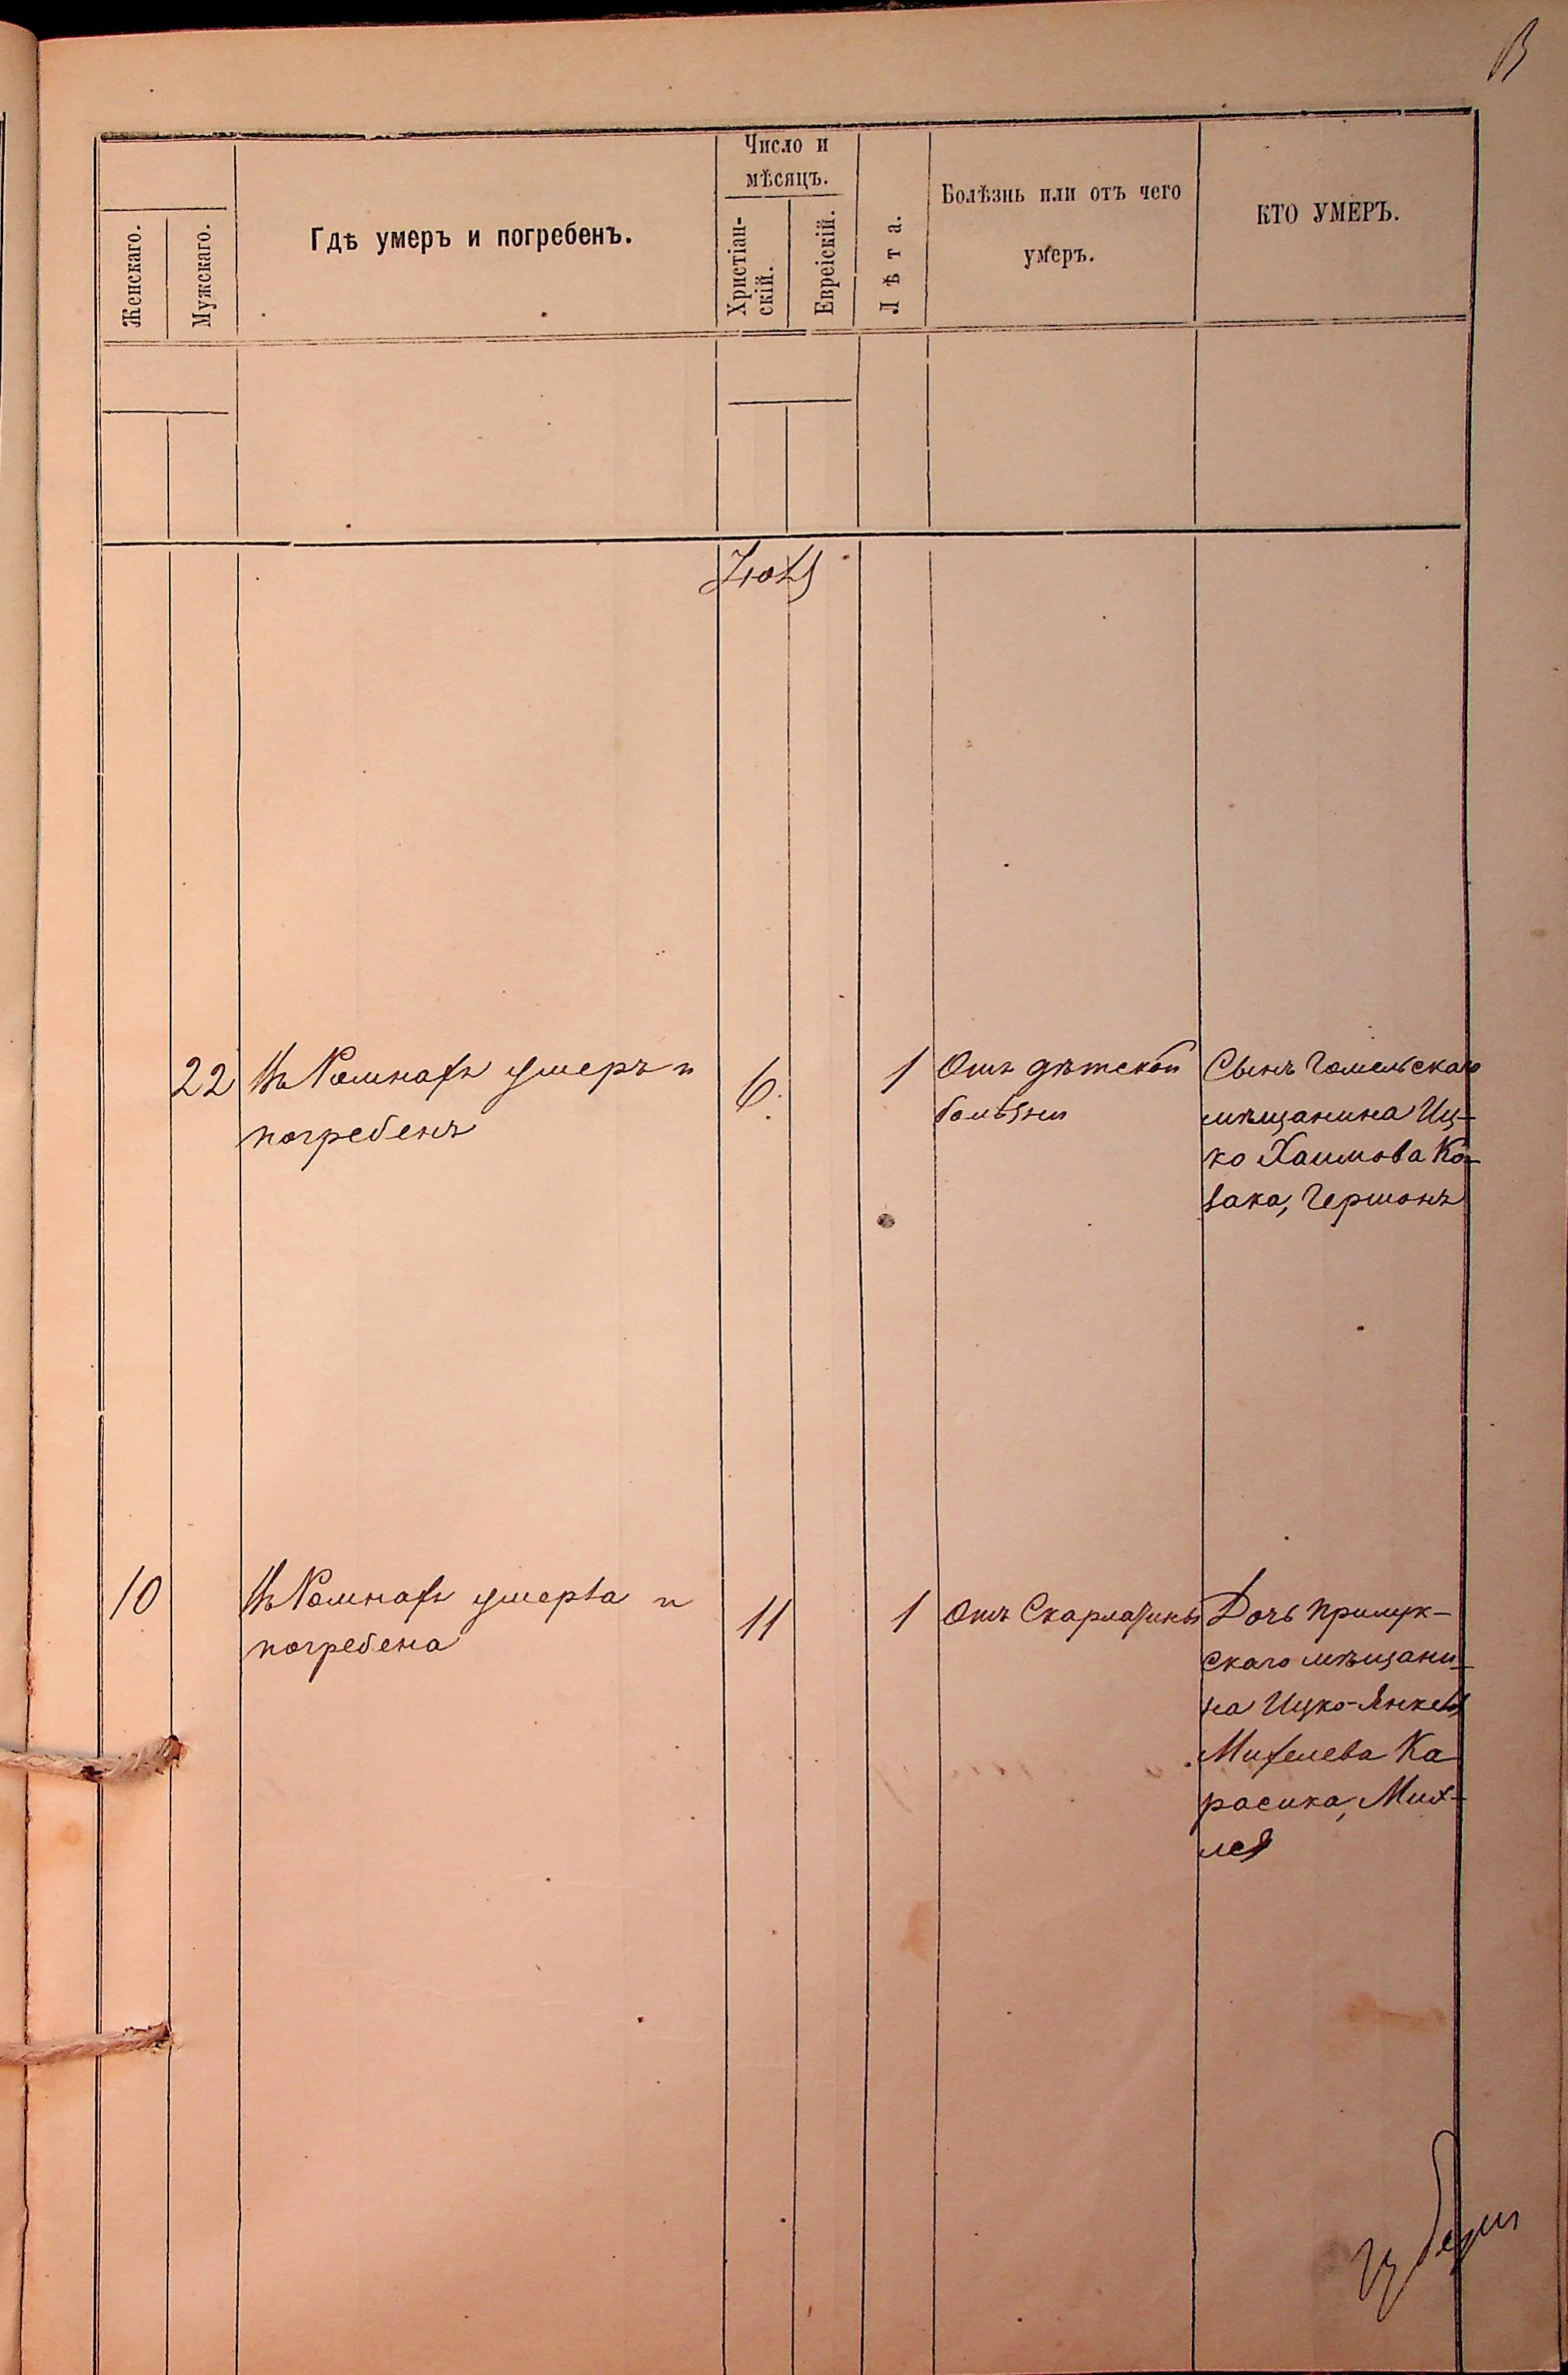 Женскаго.
Мужскаго.
Гдѣ умеръ и погребенъ.
Число и
мѣсяцъ.
Христіан-
скій.
Евреіскій.
Лѣта.
Болѣзнь или отъ чего
умеръ.
КТО УМЕРЪ.
22
Въ Ромнахъ умеръ и
погребенъ
6
1
Отъ дѣтской
болѣзни
Сынъ Гомельскаго
мѣщанина Иц-
ко Хаимова Ко-
зака, Гершонъ
10
Въ Ромнахъ умерла и
погребена
11
1
Отъ Скарлатины
Дочь Прилук-
скаго мѣщани-
на Ицко-Янкеля
Михелева Ка
расика, Мих-
ля